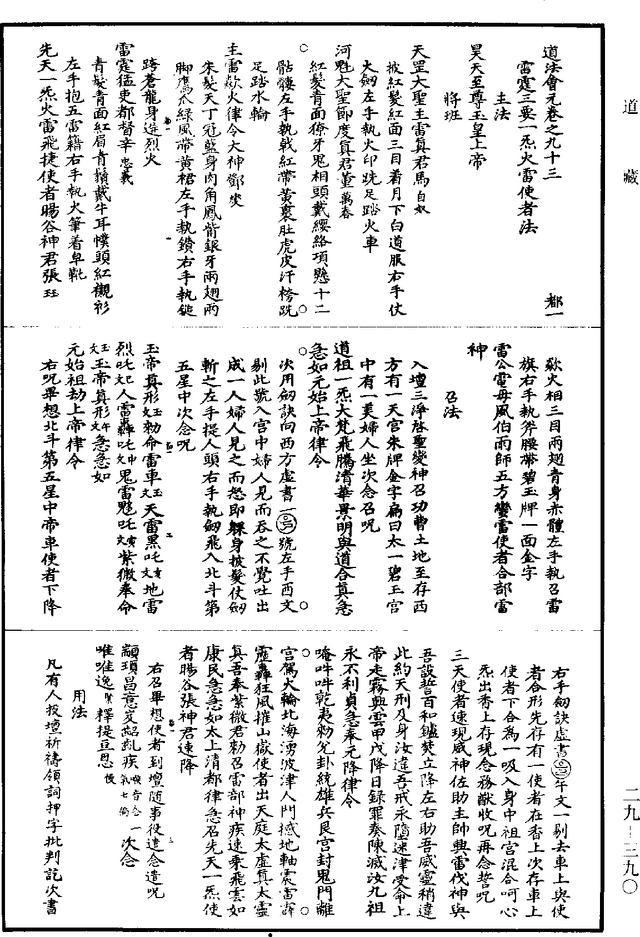 道藏
道法會元卷之九十三　都一
雷霆三要一炁火雷使者法
主法
昊天至尊玉皇上帝
將班
天罡大聖主雷真君馬自奴
披紅髮紅面三目着月下白道服右手仗
火劒左手執火印跣足踏火車
河魁大聖節度真君董萬春
紅髮青面獠牙鬼相頭戴纓絡項懸十二
骷髏左手執戟紅帶黃裹肚虎皮汗袴跣
足踏水輪
主雷歘火律令大神鄧燮
朱髮天丁冠藍身肉角鳳觜銀牙兩翅兩
脚鷹爪綠風帶黃裙左手執鑽右手執鎚
跨蒼龍身遶烈火
雷霆猛吏都督辛忠義
青髮青面紅眉青鬚戴牛耳幞頭紅襯衫
左手抱五雷籍右手執火筆着皁靴
先天一炁火雷飛捷使者暘谷神君張珏
歘火相三目兩翅青身赤體左手執召雷
旗右手執斧腰帶碧玉牌一面金字
雷公電母風伯雨師五方蠻雷使者合部雷
神
召法
入壇三淨啓聖變神召功曹土地至存西
方有一天宮朱牌金字扁曰太一碧玉宮
中有一美婦人坐次念召呪
道祖一炁大梵飛騰清華景明與道合真急
急如元始上帝律令
次用劒訣向西方虛書號左手酉文
剔此號入宮中婦人見而吞之不覺吐出
成一人婦人見之而怒即躶身披髮仗劒
斬之左手提人頭右手執劒飛入北斗第
五星中次念呪
玉帝真形勅命雷車天雷黑吒地雷
烈吒人雷轟吒鬼雷魒吒紫微奉命
玉帝真形急急如
元始祖劫上帝律令
右呪畢想北斗第五星中帝車使者下降
右手劒訣虛書午文一剔去車上與使
者合形先存有一使者在香上次存車上
使者下合為一吸入身中祖宮混合呵心
炁出香上存現念務猷收呪再念誓呪
三天使者速現威神佐助主帥興雷伐神與
吾設誓百和鑪焚立降左右助吾威靈稍違
此約天刑及身汝違吾戒永墮迷津受命上
帝走霧興雲甲戊降日録罪奏陳滅汝九祖
永不利貞急奉元降律令
唵吽吽乾夷勅兊卦統雄兵艮宮封鬼門離
宮駕火輪北海湧波津人門撼地軸震雷霹
靂轟狂風摧山嶽使者出天庭太虛真太靈
真吾奉紫微君勅召雷部神疾速乘飛雲如
康民急急如太上清都律急召先天一炁使
者暘谷張神君速降
右召畢想使者到壇随事役遣念遣呪
顓頊昌意爻䶂亂疾　一次念
唯唯逸釋提亘恩
用法
凡有人投壇祈禱領詞押字批判訖次書
二九—三九〇